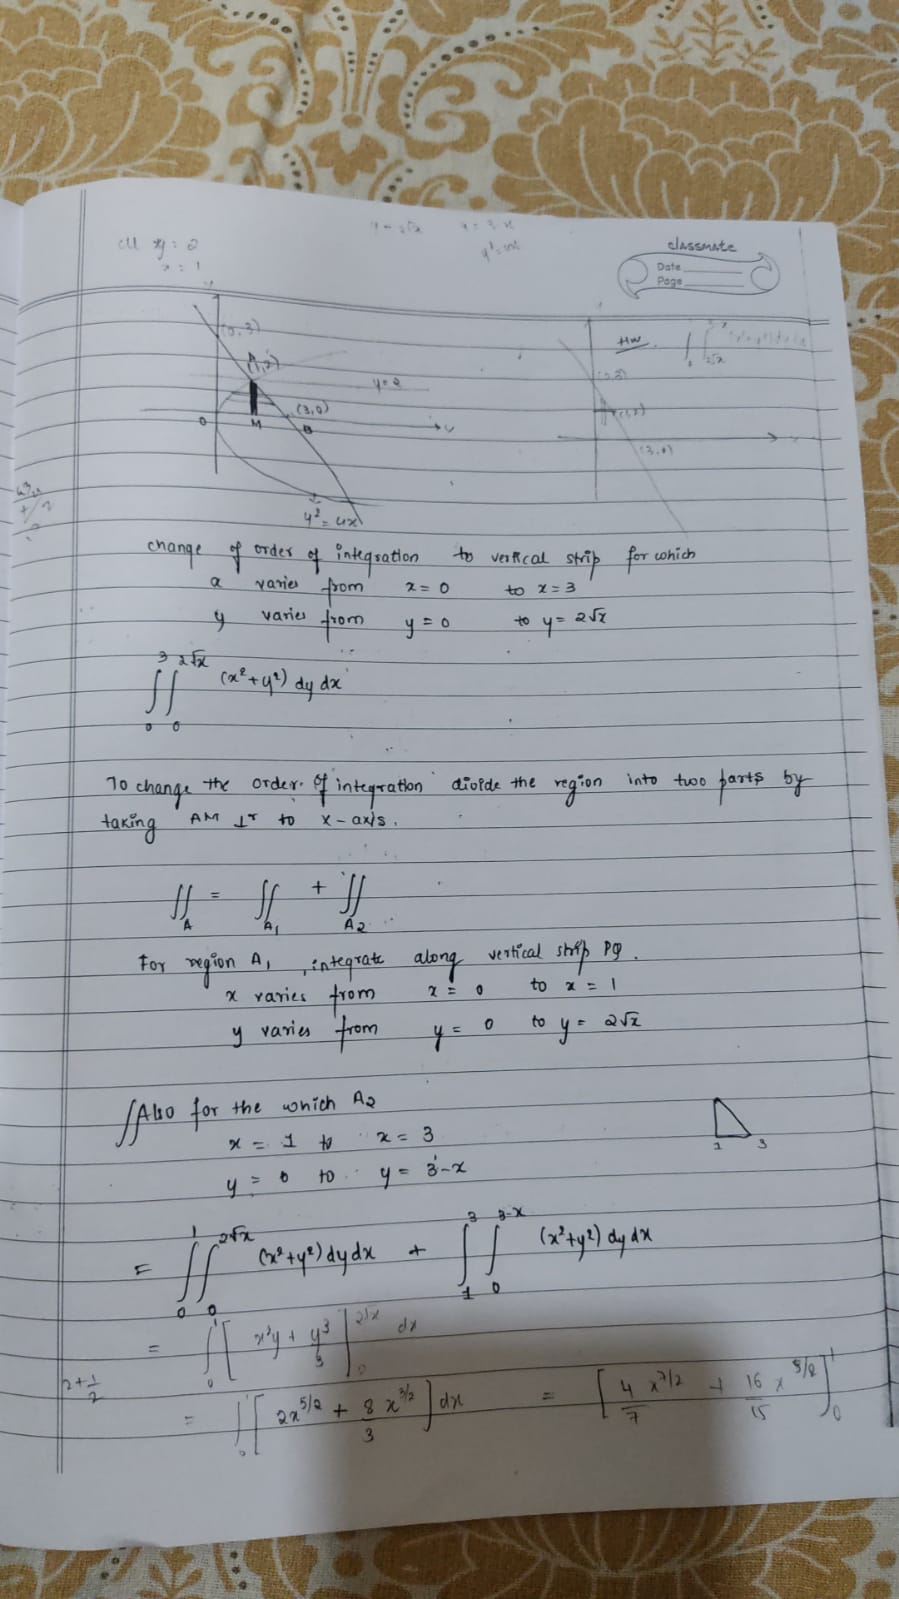 classmate
Date
Page
x = 1
(0,3)
A
(1,2)
y=2
(3,0)
O
M
B
y² = 4x
HW
(3,0)
change of order of integration to vertical strip for which
x varies from x = 0 to x = 3
y varies from y = 0 to y = 2√x
∫₀³ ∫₀^{2√x} (x²+y²) dy dx
To change the order of integration divide the region into two parts by
taking AM ⊥r to x-axis.
∬_A = ∬_{A₁} + ∬_{A₂}
For region A₁, integrate along vertical strip PQ.
x varies from x = 0 to x = 1
y varies from y = 0 to y = 2√x
∬Also for the which A₂
x = 1 to x = 3
y = 0 to y = 3-x
1 3
= ∫₀¹ ∫₀^{2√x} (x²+y²) dy dx + ∫₁³ ∫₀^{3-x} (x²+y²) dy dx
= ∫₀¹ [x²y + y³/3]₀^{2√x} dx
2+1/2
= ∫₀¹ [2x^{5/2} + 8/3 x^{3/2}] dx = [4/7 x^{7/2} + 16/15 x^{5/2}]₀¹